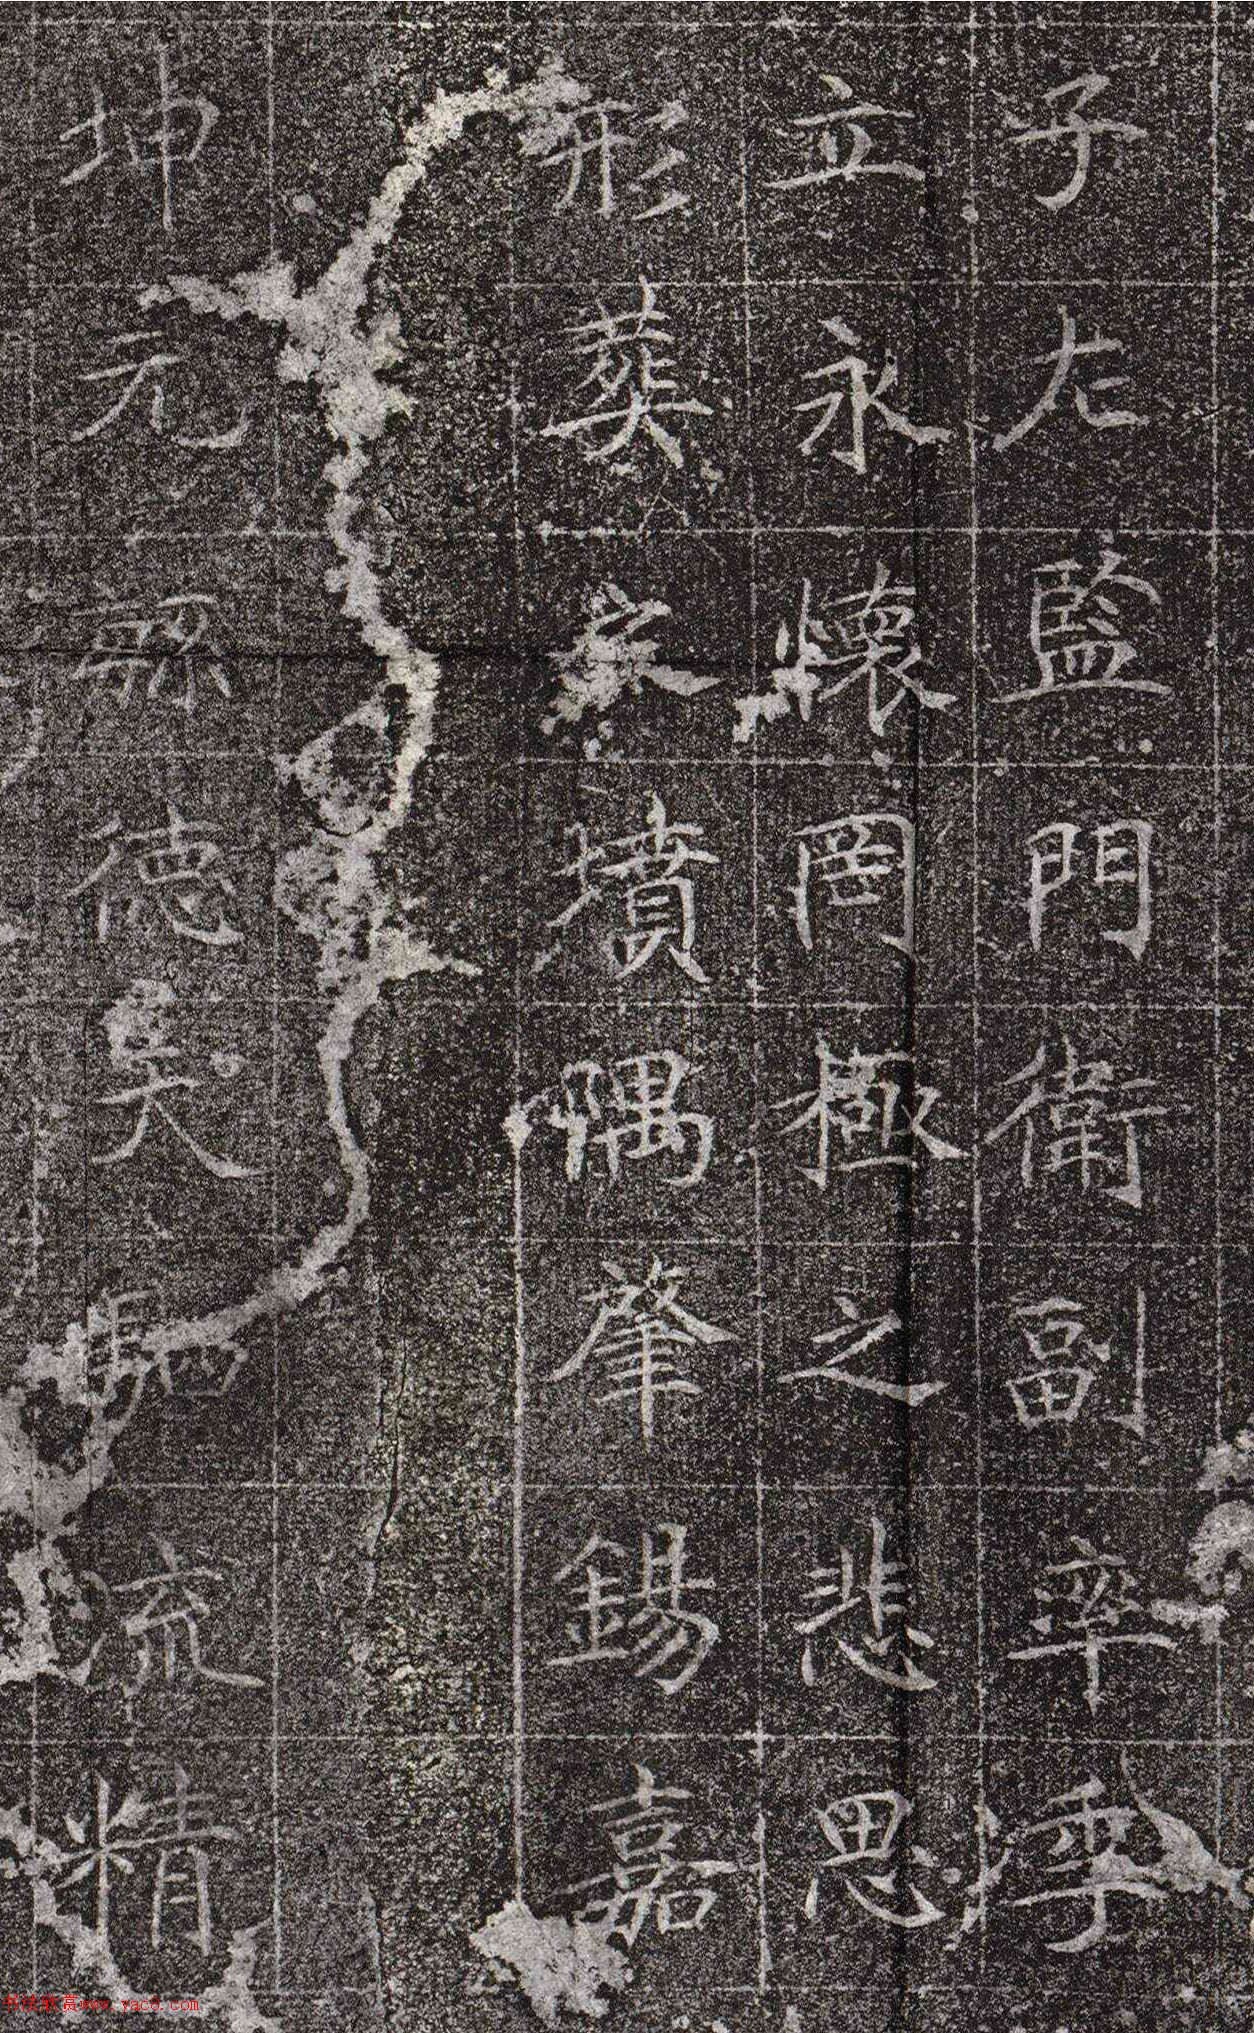 子左監門衛副率
立永懷罔極之悲思
形葬墳隅肇錫嘉
坤元德流精
书法欣赏www.yac8.com